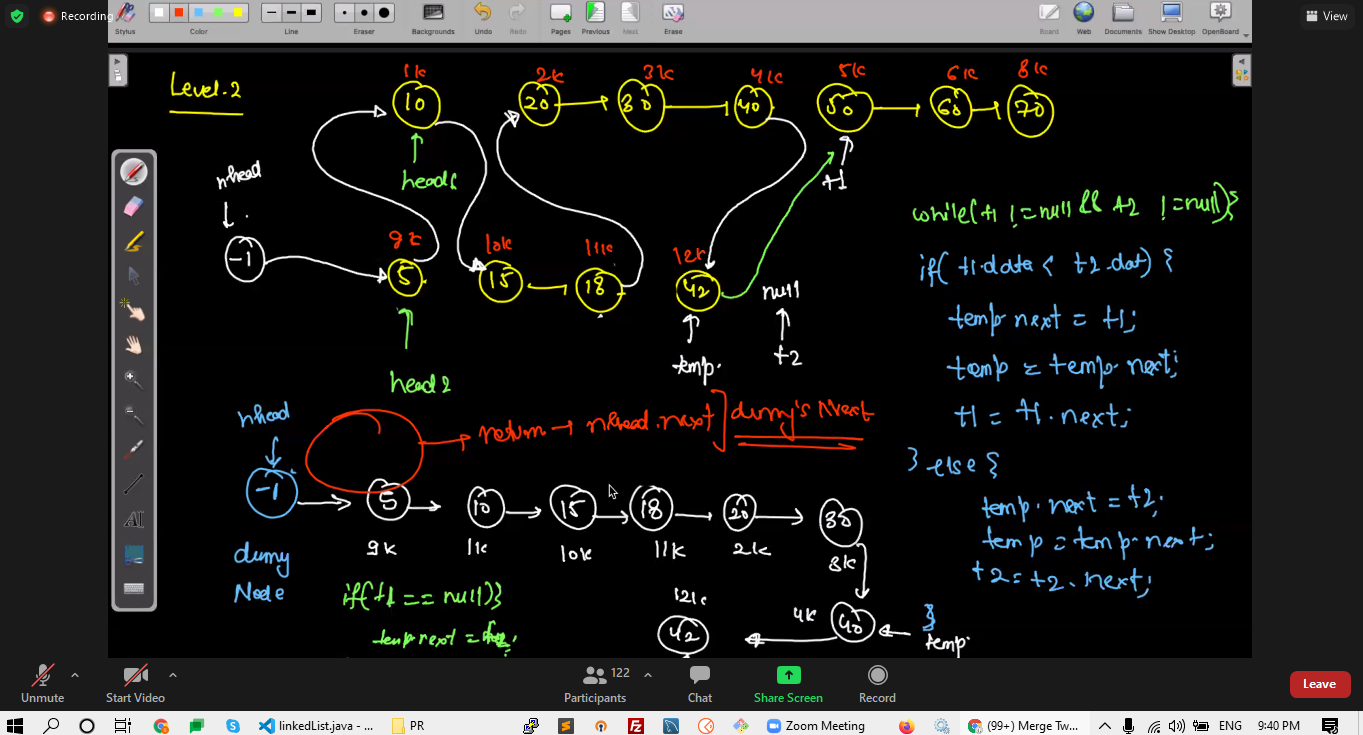 heading
View
Stylus
Color
Line
Eraser
Backgrounds
Undo
Redo
Pages
Previous
Next
Erase
Board
Web
Documents
Show Desktop
OpenBoard
Level-2
1k 2k 3k 4k 5k 6k 8k
10 20 30 40 50 60 70
head1
t1
nhead
-1
9k 10k 11k 12k
5 15 18 42 null
temp. t2
head2
while(t1 != null && t2 != null){
if( t1.data < t2.dat) {
temp next = t1;
temp = temp.next;
t1 = t1.next;
} else {
temp.next = t2;
temp = temp.next;
t2 = t2.next;
}
nhead
return → nhead.next] dumy's Next
-1 5 10 15 18 20 30
9k 1k 10k 11k 2k 3k
dumy
Node
if(t1 == null){
temp.next =
12k 4k
42 40
temp.
Unmute
Start Video
122
Participants
Chat
Share Screen
Record
Leave
linkedList.java - ...
PR
Zoom Meeting
(99+) Merge Tw...
ENG
9:40 PM